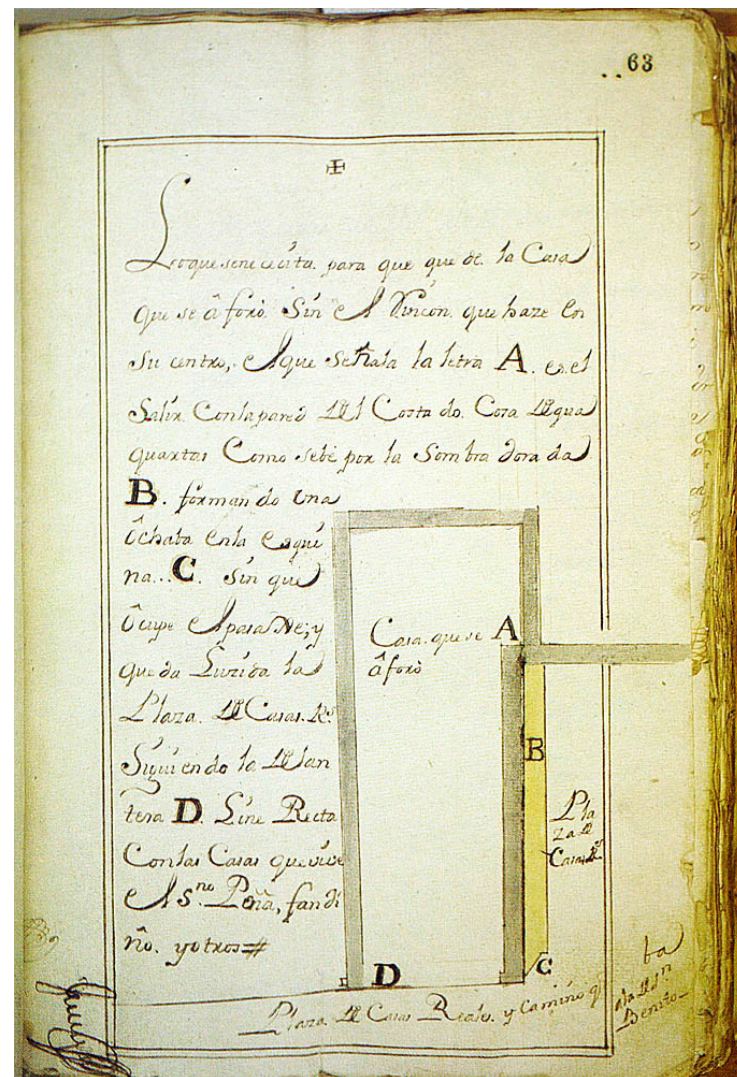 63
Lo que se ne cecita. para que que de la Casa
Que se â foxò. Sin el Rincon. que haze en
Su centro, el que Señala la letra A. es el
Salir. Con la pared del Costa do. Cosa de qua
quartas Como se bé por la Sombra dora da
B. forman do una
ôchaba en la esqui
na.. C. Sin que
ôcupe el pasaxe; y
que da Luzida la
Plaza. de Casas. Rs
Siguien do la delan
tera D. Line Recta
Con las Casas que vive
el S.no Peña, fandi
ño. y otros #
Casa. que se A
â foxò
B
Pla
za de
Casas Rs
C
D
Plaza de Casas Reales. y Camino q
ba
Benito